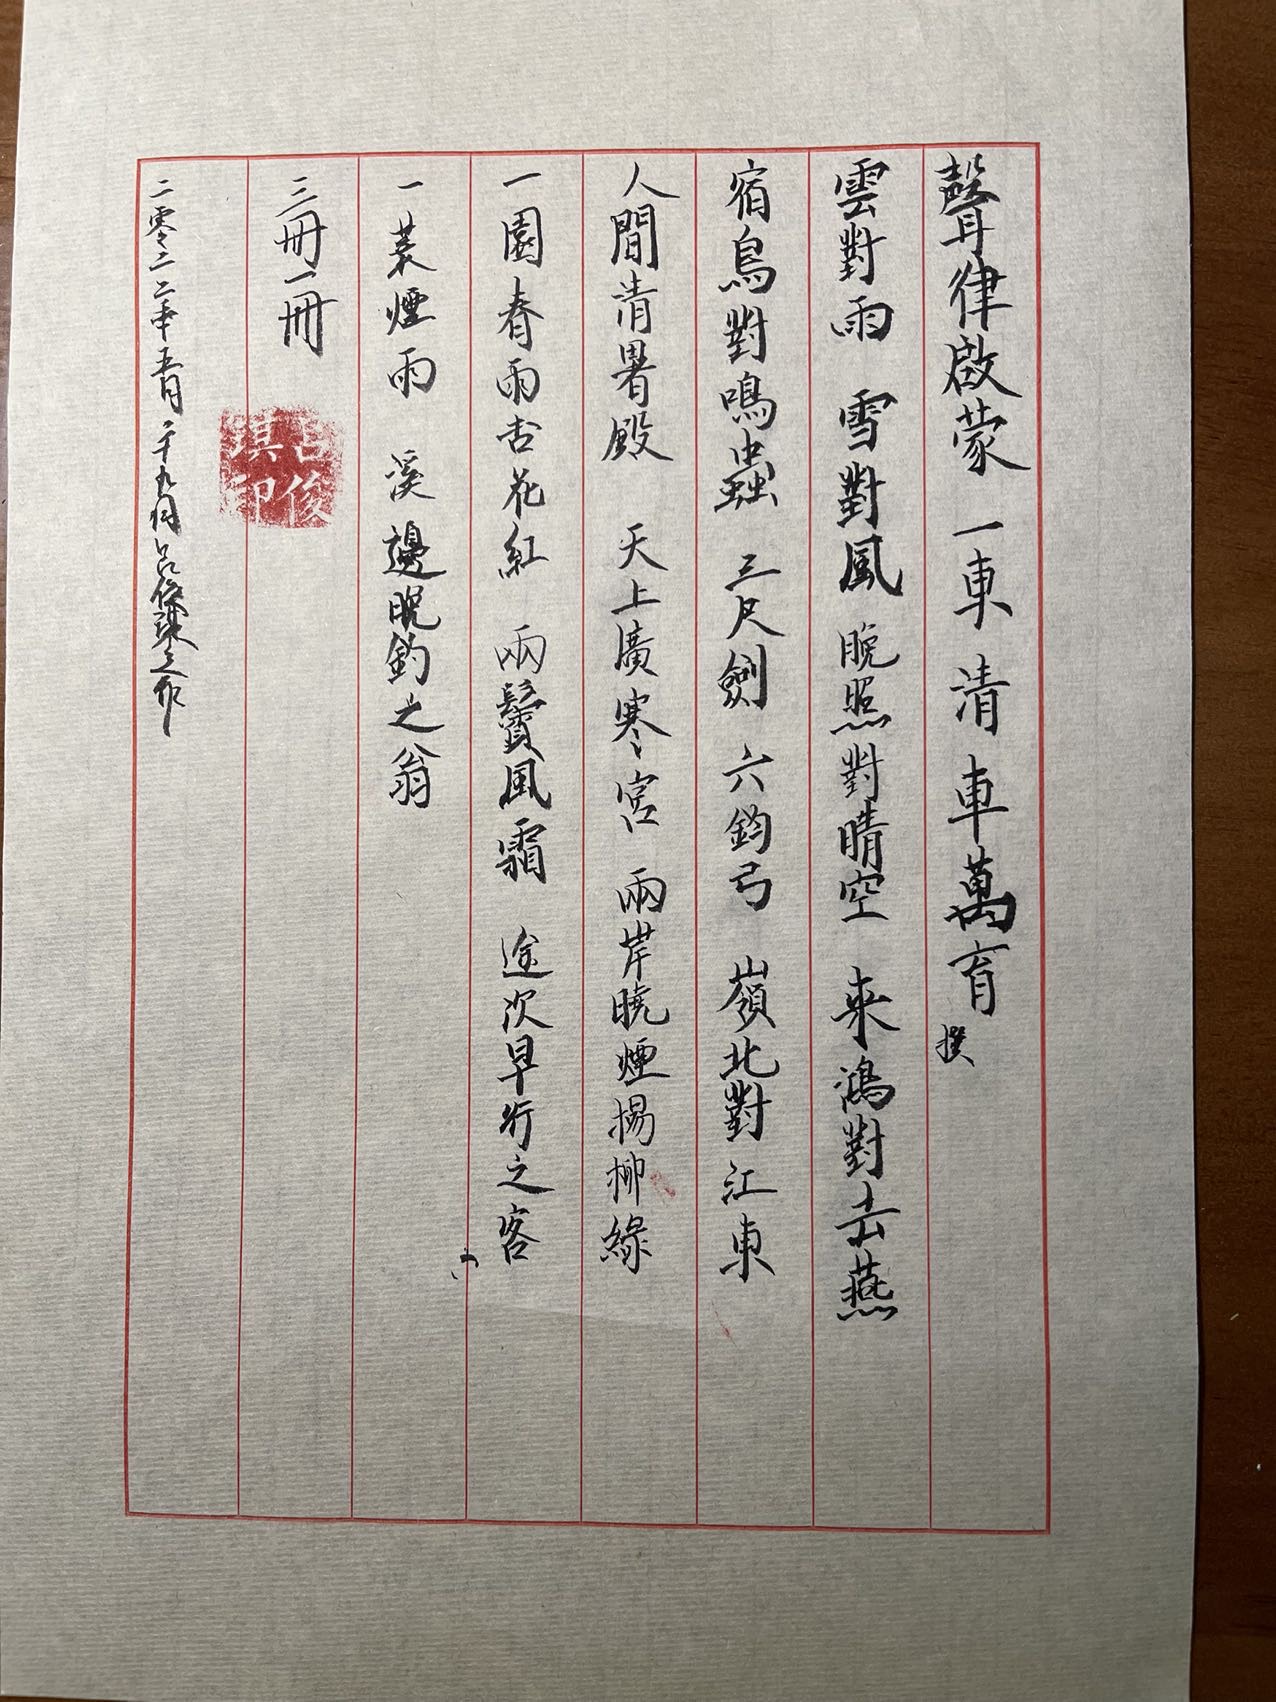 聲律啟蒙 一東 清 車萬育 撰
雲對雨 雪對風 晚照對晴空 来鴻對去燕
宿鳥對鳴蟲 三尺劍 六鈞弓 嶺北對江東
人間清暑殿 天上廣寒宮 兩岸曉煙楊柳綠
一園春雨杏花紅 兩鬢風霜 途次早行之客
一蓑煙雨 溪邊晚釣之翁
三冊一冊
二零二二年五月二十九日呂俊琪之作
呂俊琪印